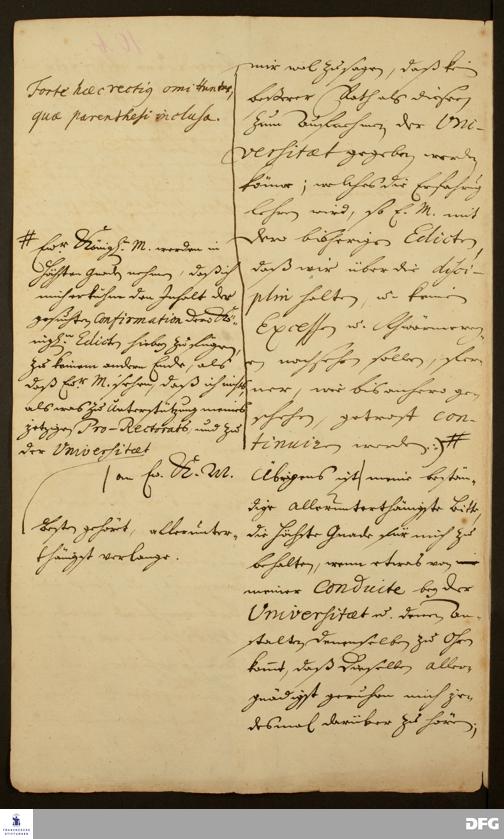 Forte hæc rectiq omittuntur,
quæ parenthesi inclusa.
# Ew. Königl. M. werden in
höchsten Gnaden nehmen, daß ich
mich erkühne den Inhalt der
gesuchten Confirmation dero Kö-
nigl. Edicten hieben zu fügen,
zu keinem andern Ende, als
daß Ew. M. sehen, daß ich nichts
als was zu Unterstützung meines
jetzigen Pro-Rectorats, und zu
der Universitæt
an Ew. K. M.
besten gehört, allerunter-
thänigst verlange.
mir wol zu sagen, daß kein
beßerer Rath als dieser
zum Aufnehmen der Uni-
versitæt gegeben werden
könne; welches die Erfahrung
lehren wird, so E. M. mit
dero bisherigen Edicten,
daß wir über die disci-
plin halten, u. keine
Excessen u. Schwärmereyen
nachsehen sollen, fer-
ner, wie bis anhero ge-
schehen, getrost con-
tinuiren werden. #
Übrigens ist meine bestän-
dige allerunterthänigste Bitte,
die höchste Gnade für mich zu
behalten, wenn etwas von
meiner Conduite bey der
Universitæt u. denen An-
stalten denenselben zu Ohren
komt, daß dieselben aller-
gnädigst geruhen mich je-
desmal darüber zu hören;
FRANCKESCHE
STIFTUNGEN
DFG